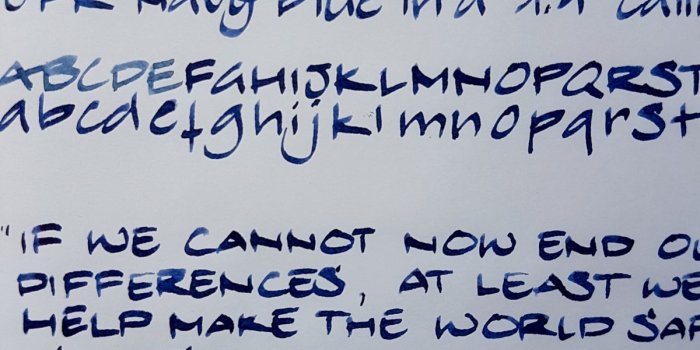 Navy Blue in a
ABCDEFGHIJKLMNOPQRST
abcdefghijklmnopqrst
"IF WE CANNOT NOW END
DIFFERENCES, AT LEAST WE
HELP MAKE THE WORLD